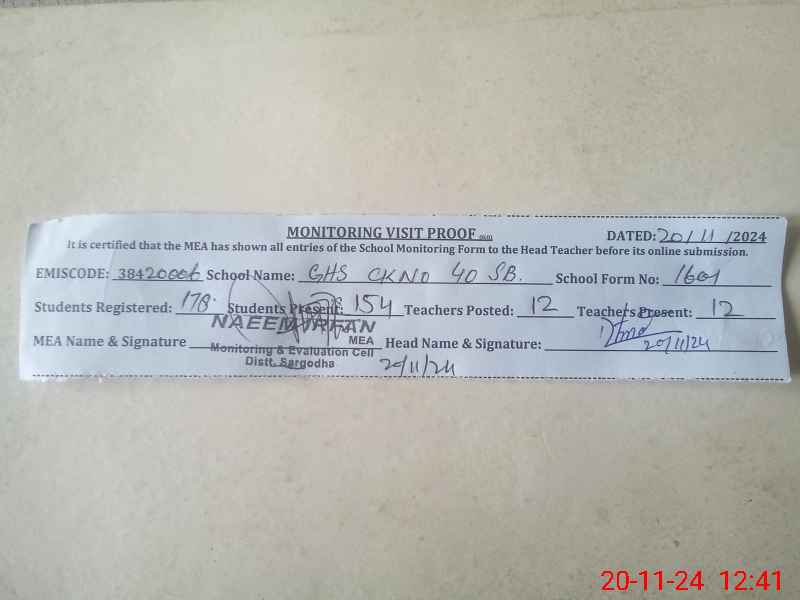 MONITORING VISIT PROOF DATED: 20/11/2024
It is certified that the MEA has shown all entries of the School Monitoring Form to the Head Teacher before its online submission.
EMISCODE: 38420006 School Name: GHS CKNO 40 SB. School Form No: 1601
Students Registered: 178 Students Present: 154 Teachers Posted: 12 Teachers Present: 12
MEA Name & Signature Head Name & Signature: 20/11/24
NAEEM
MEA
Monitoring & Evaluation Cell
Distt. Sargodha
20/11/24
20-11-24 12:41